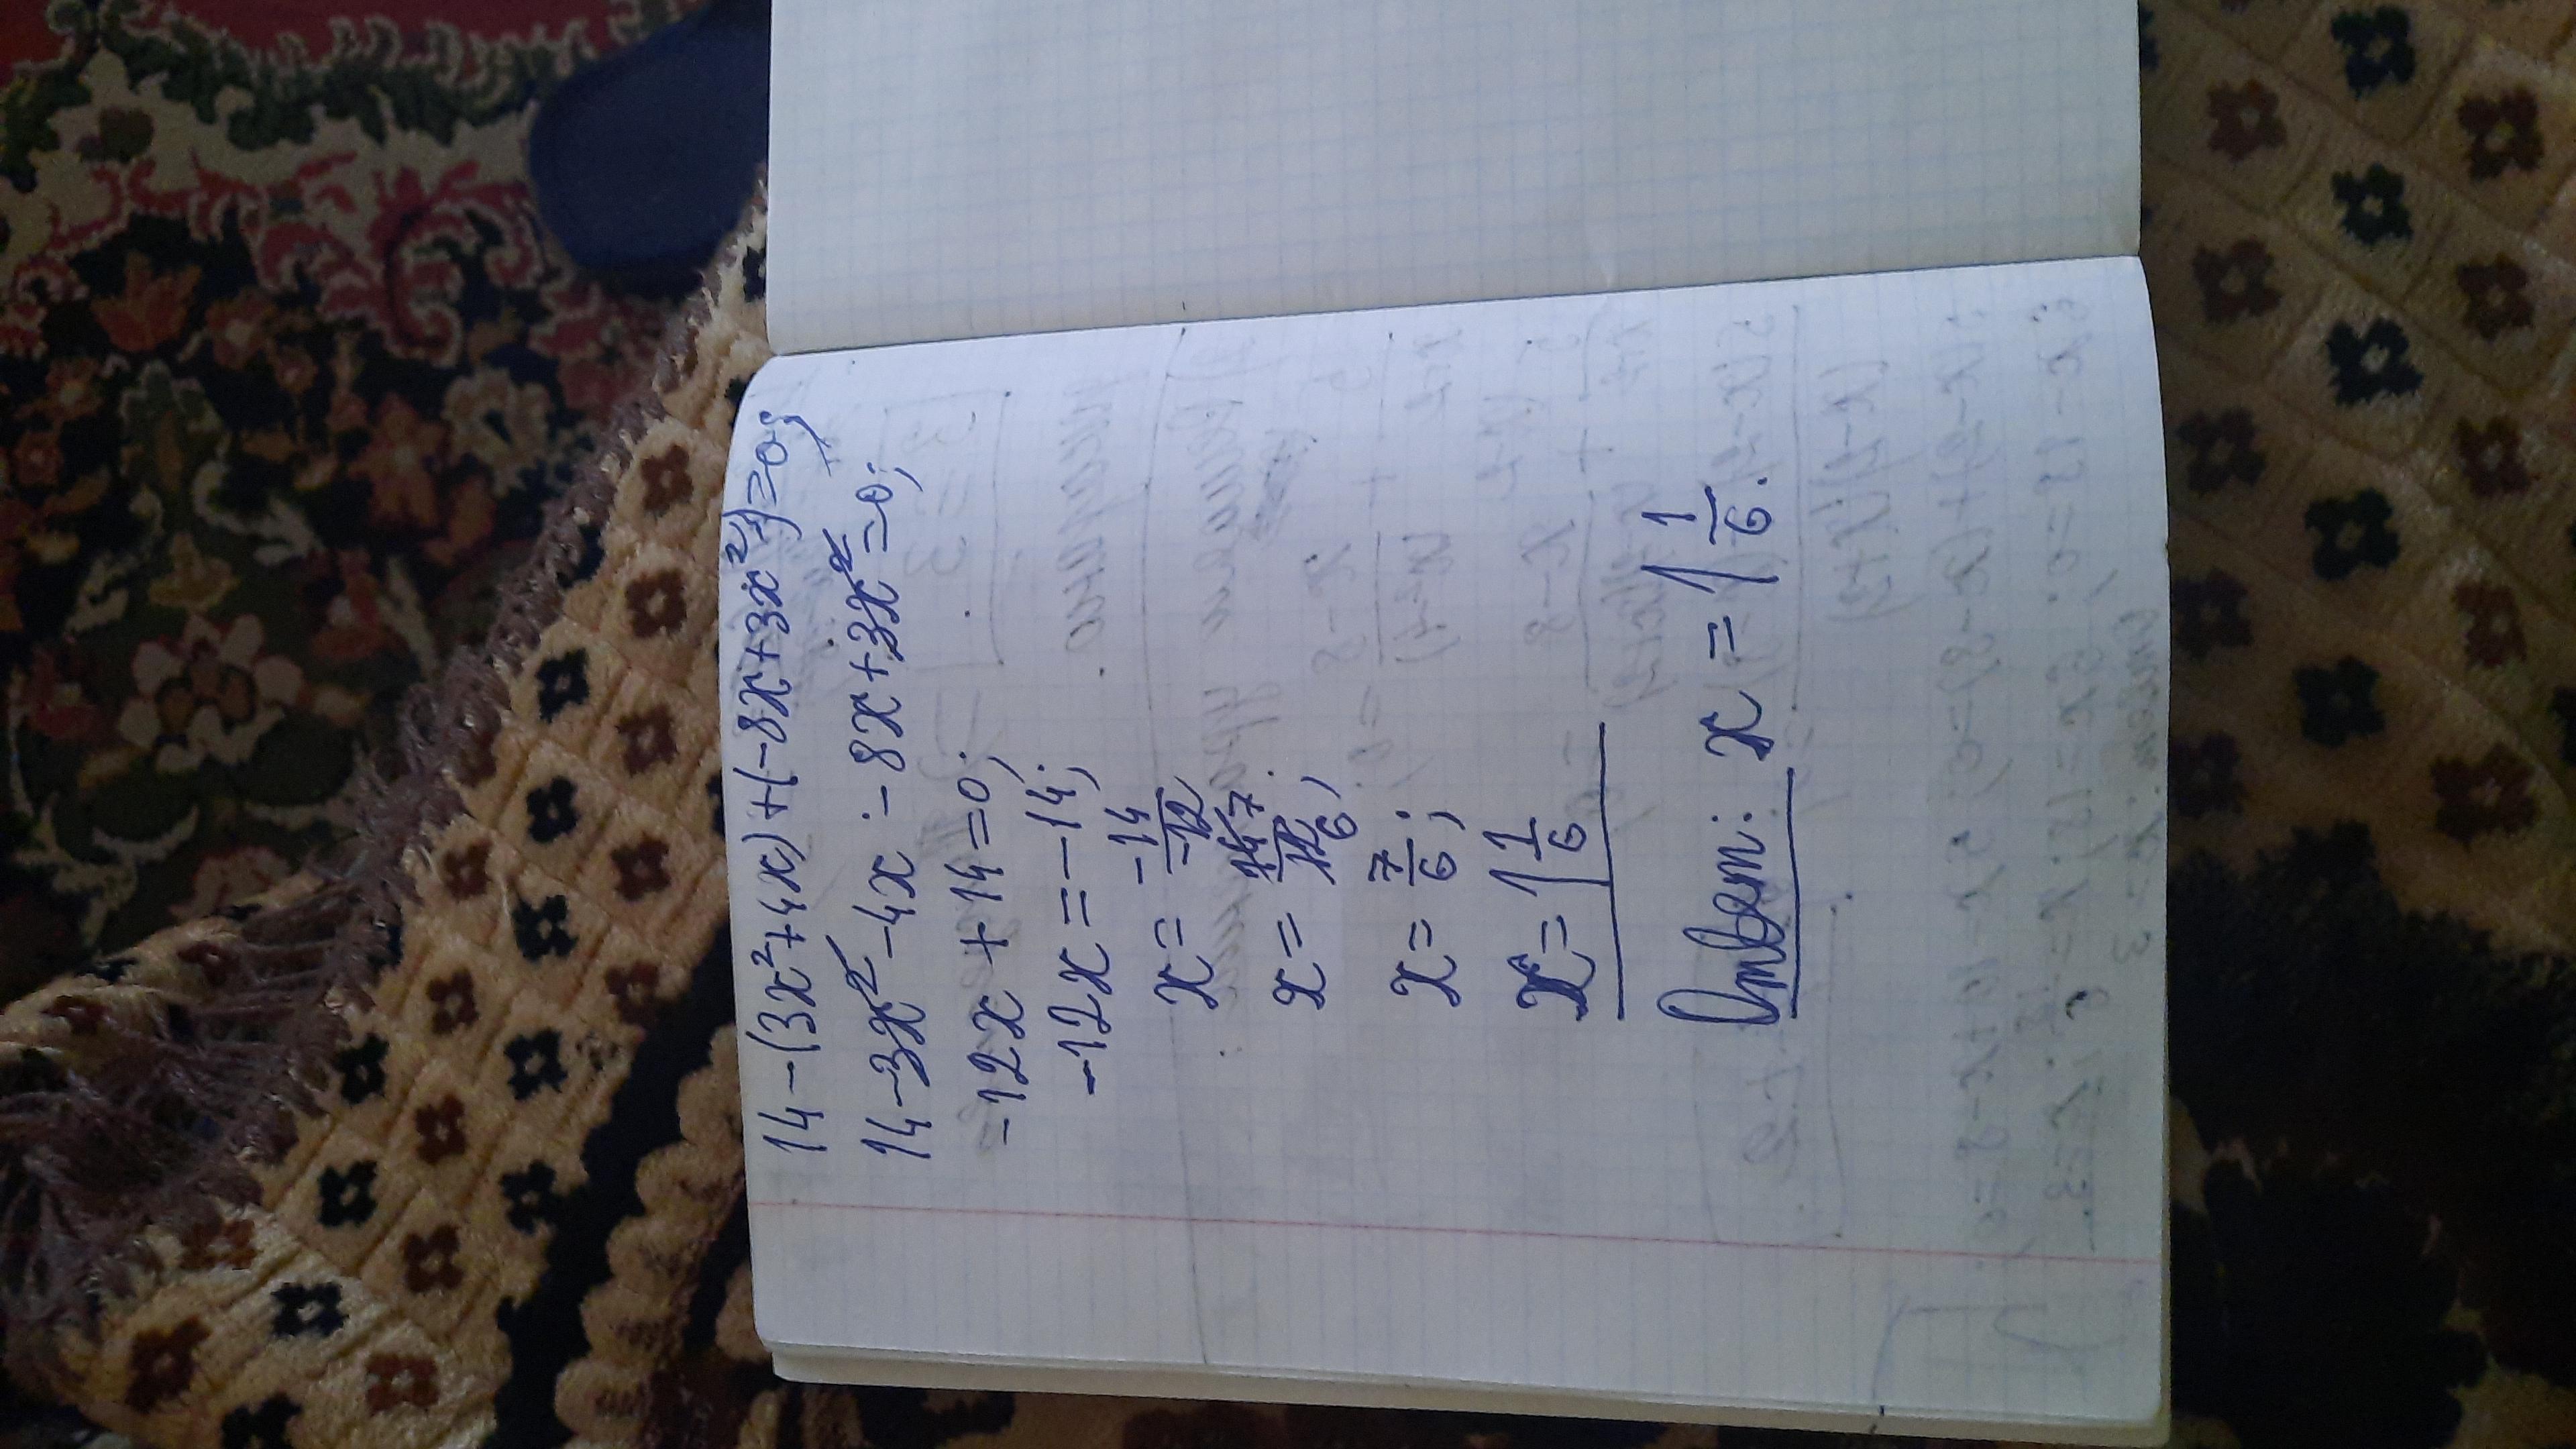 14-(3x²+4x)+(-8x+3x²)=0;
14-3x²-4x-8x+3x²=0;
-12x+14=0;
-12x=-14;
x=-14/-12
x=14/12 7/6;
x=7/6;
x=1 1/6
Ответ: x=1 1/6.